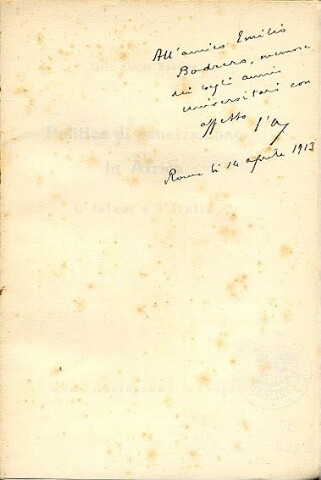 All'amico Emilio
Bodrero, memore
dei begli anni
universitari con
affetto l'a.
Roma li 14 aprile 1913
Politica di penetrazione
in Africa
L'Islam e l'Italia